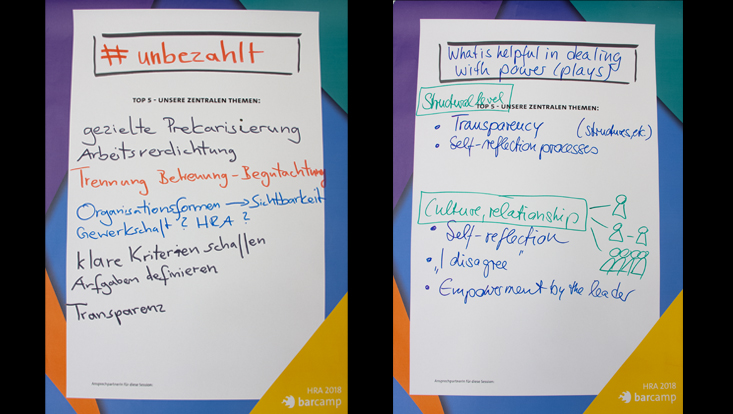 # unbezahlt
TOP 5 - UNSERE ZENTRALEN THEMEN:
gezielte Prekarisierung
Arbeitsverdichtung
Trennung Betreuung-Begutachtung
Organisationsformen → Sichtbarkeit
Gewerkschaft? HRA?
klare Kriterien schaffen
Aufgaben definieren
Transparenz
Ansprechpartner/in für diese Session:
HRA 2018
barcamp
What is helpful in dealing
with power (plays)
Structural level
TOP 5 - UNSERE ZENTRALEN THEMEN:
• Transparency (structures, etc.)
• Self-reflection processes
Culture, relationship
• Self-reflection
• "I disagree"
• Empowerment by the leader
Ansprechpartner/in für diese Session:
HRA 2018
barcamp